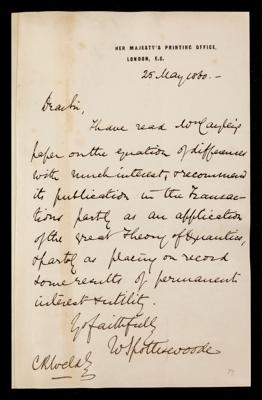 HER MAJESTY'S PRINTING OFFICE,
LONDON, E.C.
25 May 1860.
Dear Sir,
I have read Mr Cayley's
paper on the equation of differences
with much interest, & recommend
its publication in the Transac-
tions partly as an application
of the great theory of Quantics,
& partly as placing on record
some results of permanent
interest & utility.
Yrs faithfully
W Spottiswoode
C R Weld Esq